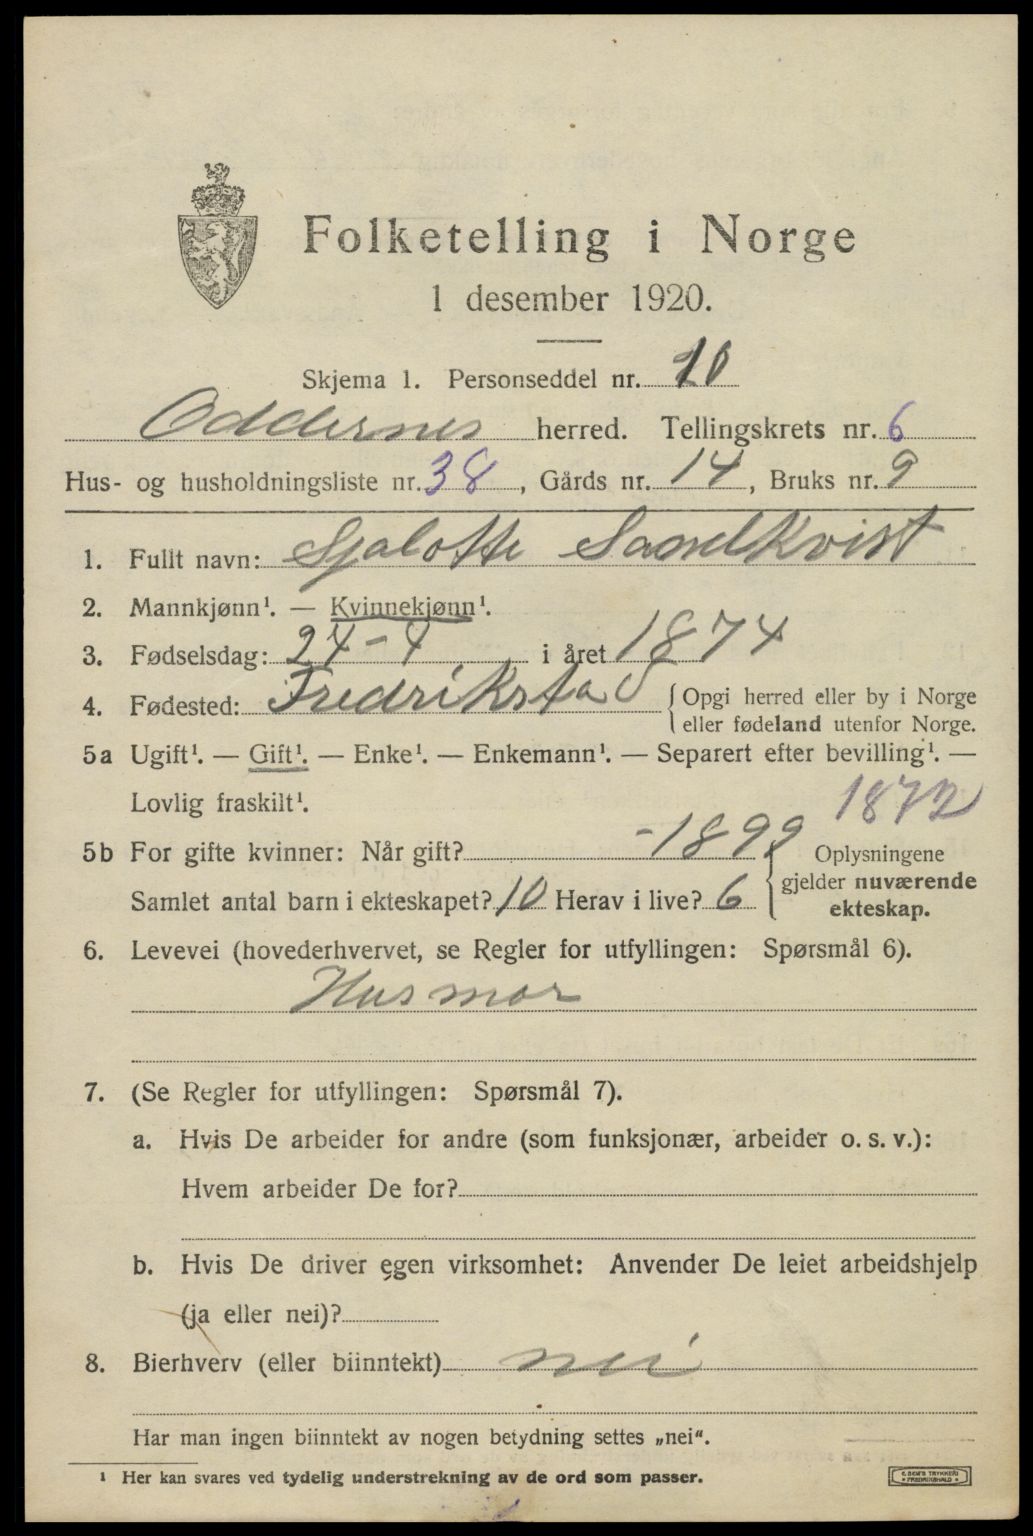 Folketelling i Norge
1 desember 1920.
Skjema 1. Personseddel nr. 10
Oddernes herred. Tellingskrets nr. 6
Hus- og husholdningsliste nr. 38, Gårds nr. 14, Bruks nr. 9
1. Fullt navn: Sjalotte Sandkvist
2. Mannkjønn¹. — Kvinnekjønn¹.
3. Fødselsdag: 24-4 i året 1874
4. Fødested: Fredrikstad {Opgi herred eller by i Norge
eller fødeland utenfor Norge.
5a Ugift¹. — Gift¹. — Enke¹. — Enkemann¹. — Separert efter bevilling¹. —
Lovlig fraskilt¹.
1872
5b For gifte kvinner: Når gift? -1899
Samlet antal barn i ekteskapet? 10 Herav i live? 6
{Oplysningene
gjelder nuværende
ekteskap.
6. Levevei (hovederhvervet, se Regler for utfyllingen: Spørsmål 6).
Husmor
7. (Se Regler for utfyllingen: Spørsmål 7).
a. Hvis De arbeider for andre (som funksjonær, arbeider o. s. v.):
Hvem arbeider De for?
b. Hvis De driver egen virksomhet: Anvender De leiet arbeidshjelp
(ja eller nei)?
8. Bierhverv (eller biinntekt) nei
Har man ingen biinntekt av nogen betydning settes „nei".
¹ Her kan svares ved tydelig understrekning av de ord som passer.